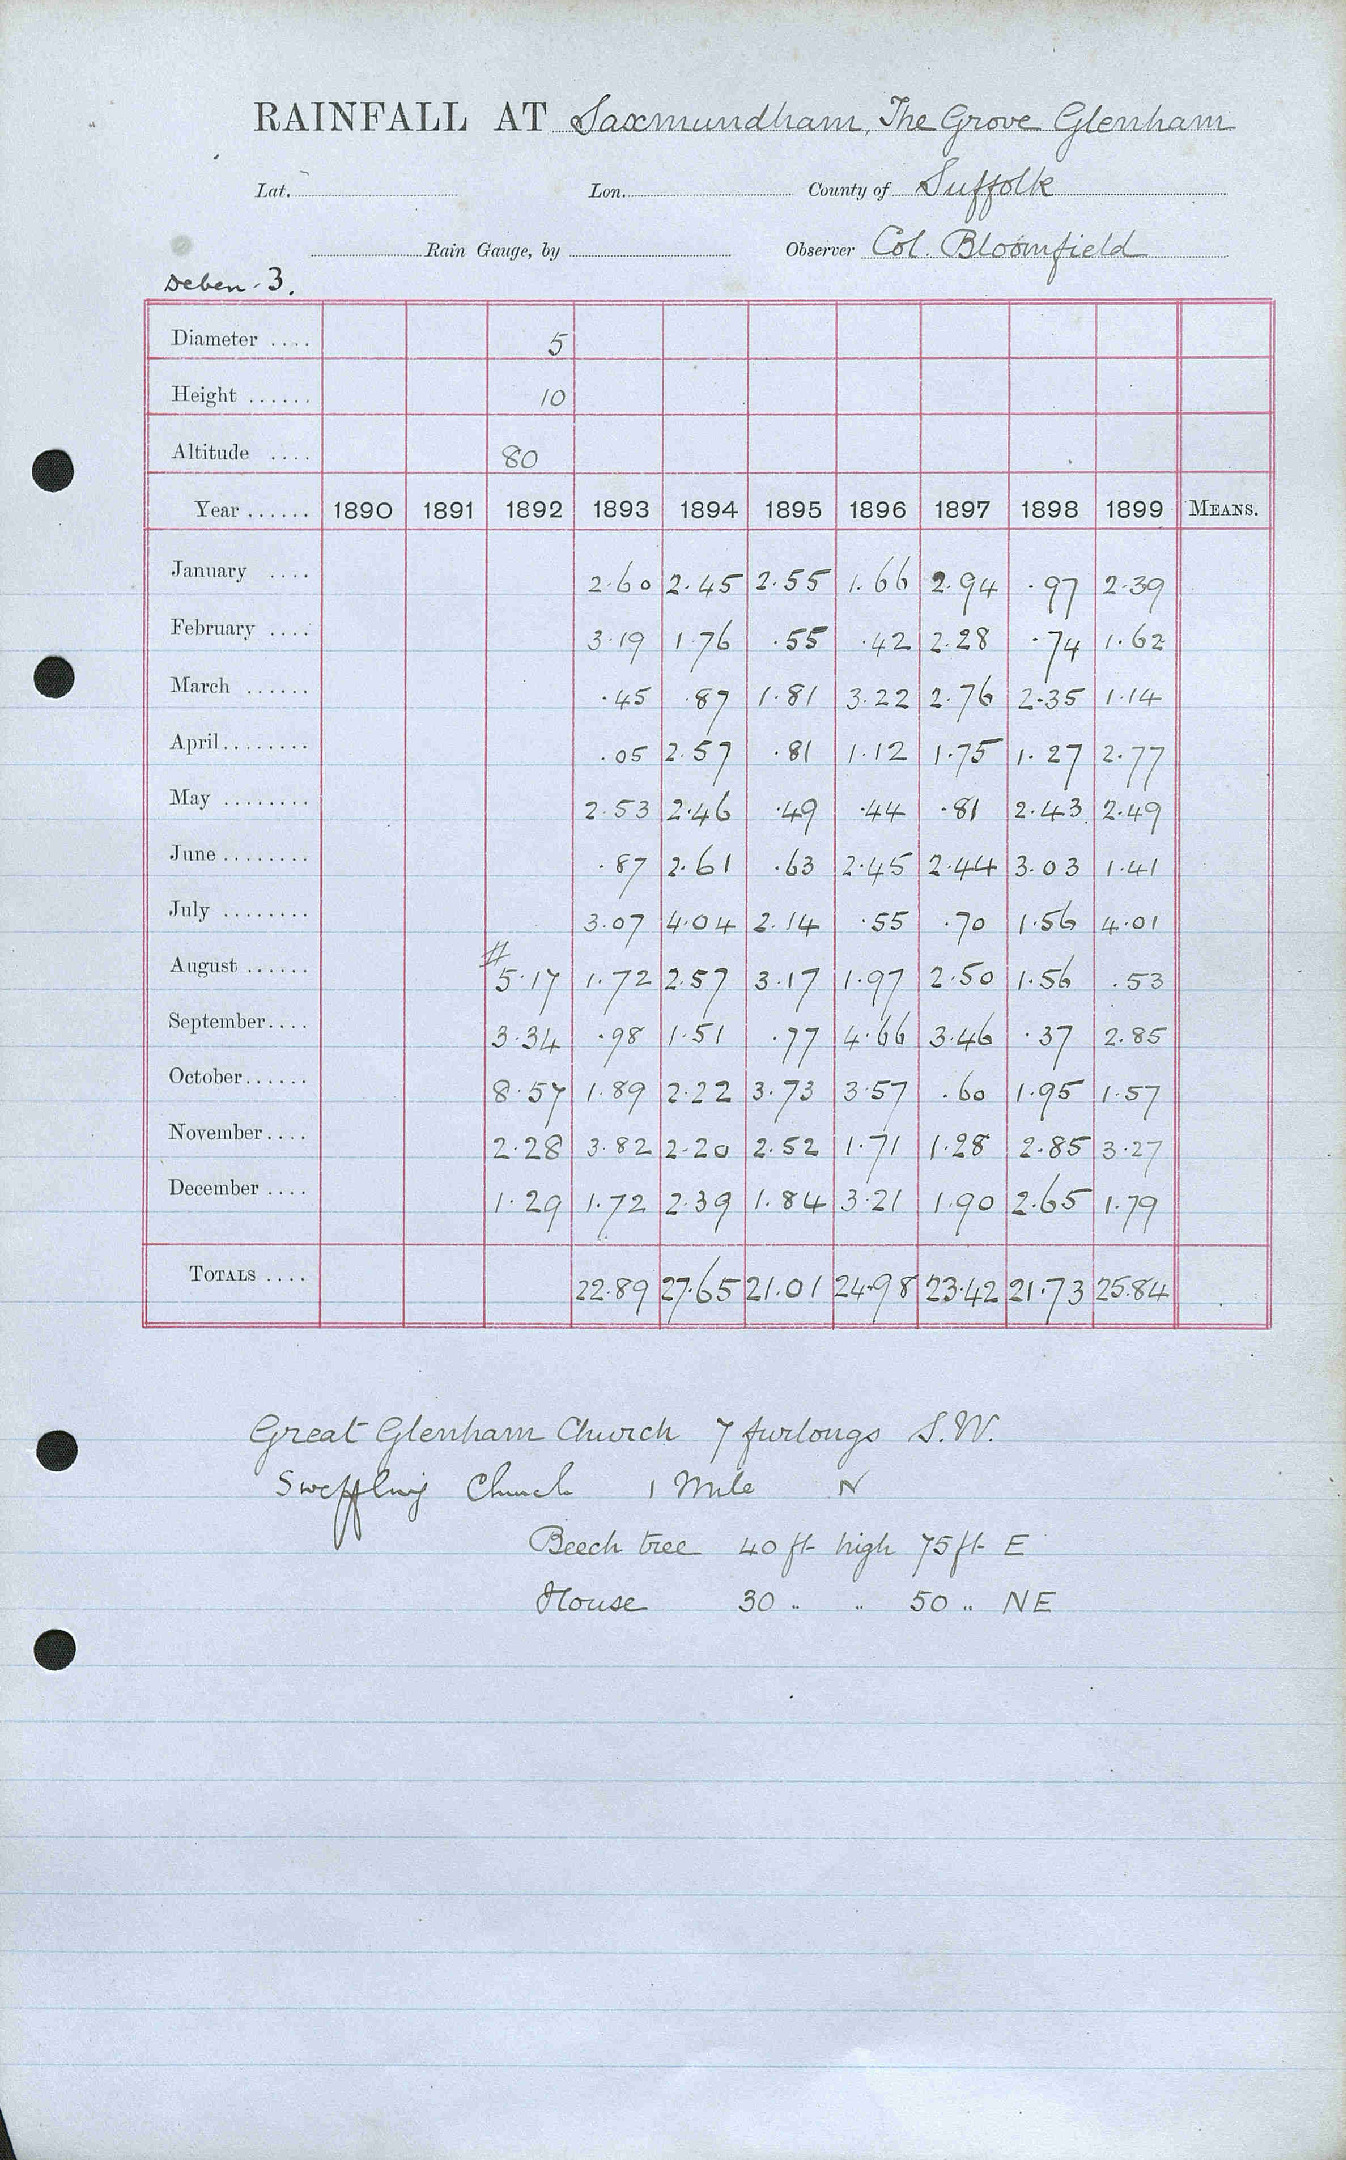 RAINFALL AT Saxmundham, The Grove Glenham
Lat. Lon. County of Suffolk
Rain Gauge, by Observer Col. Bloomfield
Deben. 3.
Diameter .... 5
Height ...... 10
Altitude .... 80
Year ...... 1890 1891 1892 1893 1894 1895 1896 1897 1898 1899 MEANS.
January .... 2.60 2.45 2.55 1.66 2.94 .97 2.39
February .... 3.19 1.76 .55 .42 2.28 .74 1.62
March ...... .45 .87 1.81 3.22 2.76 2.35 1.14
April ........ .05 2.57 .81 1.12 1.75 1.27 2.77
May ........ 2.53 2.46 .49 .44 .81 2.43 2.49
June ........ .87 2.61 .63 2.45 2.44 3.03 1.41
July ........ 3.07 4.04 2.14 .55 .70 1.56 4.01
August ...... # 5.17 1.72 2.57 3.17 1.97 2.50 1.56 .53
September .... 3.34 .98 1.51 .77 4.66 3.46 .37 2.85
October ...... 8.57 1.89 2.22 3.73 3.57 .60 1.95 1.57
November .... 2.28 3.82 2.20 2.52 1.71 1.28 2.85 3.27
December .... 1.29 1.72 2.39 1.84 3.21 1.90 2.65 1.79
TOTALS .... 22.89 27.65 21.01 24.98 23.42 21.73 25.84
Great Glenham Church 7 furlongs S.W.
Sweffling Church 1 Mile N
Beech tree 40 ft high 75 ft E
House 30 " " 50 " NE